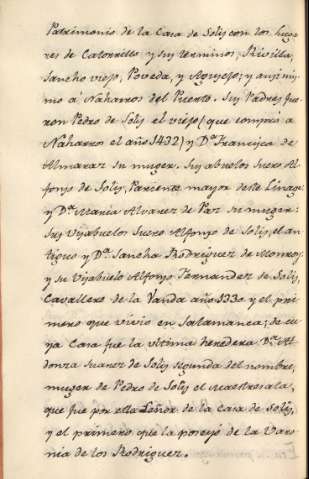 Patrimonio de la Casa de Solis con los luga
res de Cotorrillo, y sus terminos, Rivilla,
Sancho viejo, Poveda, y Agusejo; y assimis
mo a Naharros del Puerto. Sus Padres fue
ron Pedro de Solis el viejo (que compró a
Naharros el año 1432) y Dª Francisca de
Almaraz su muger. Sus abuelos Suero Al
fonso de Solis, Pariente mayor deste Linage
y Dª Maria Alvarez de Paz su muger:
Sus Visabuelos Suero Alfonso de Solis, el an
tiguo y Dª Sancha Rodriguez de Monroy:
y su Visabuelo Alfonso Fernandez de Solis,
Cavallero de la Vanda año 1330 y el pri
mero que vivio en Salamanca; de cu
ya Casa fue la ultima heredera Dª Al
donza Suarez de Solis segunda del nombre,
muger de Pedro de Solis el Maestresala,
que fue por ella Señor de la Casa de Solis,
y el primero que la poseyó de la Varo
nia de los Rodriguez.